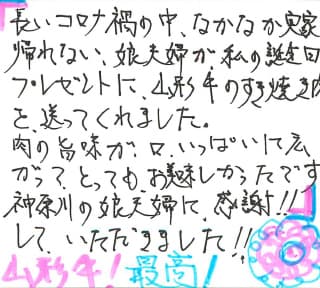 長いコロナ禍の中、なかなか実家
帰れない、娘夫婦が、私の誕生日
プレゼントに、山形牛のすき焼き肉
を、送ってくれました。
肉の旨味が、口、いっぱいに広
がって、とっても、お美味しかったです
神奈川の娘夫婦に、感謝!!
して、いただきました!!
山形牛!最高!